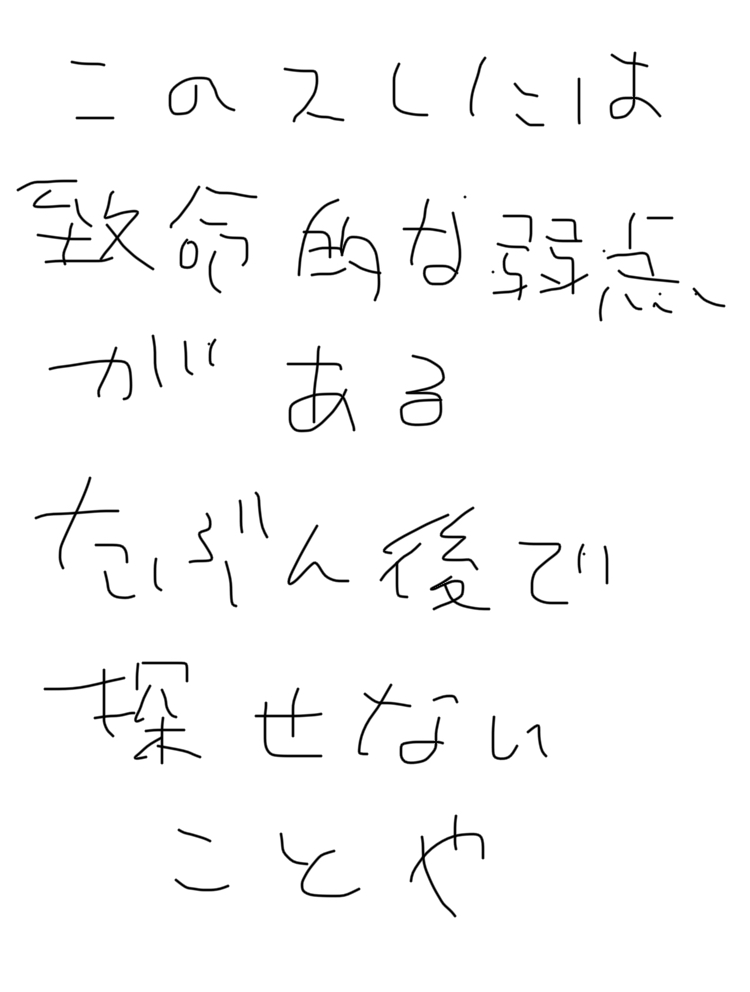 このスレには
致命的な弱点
がある
たぶん後で
探せない
ことや